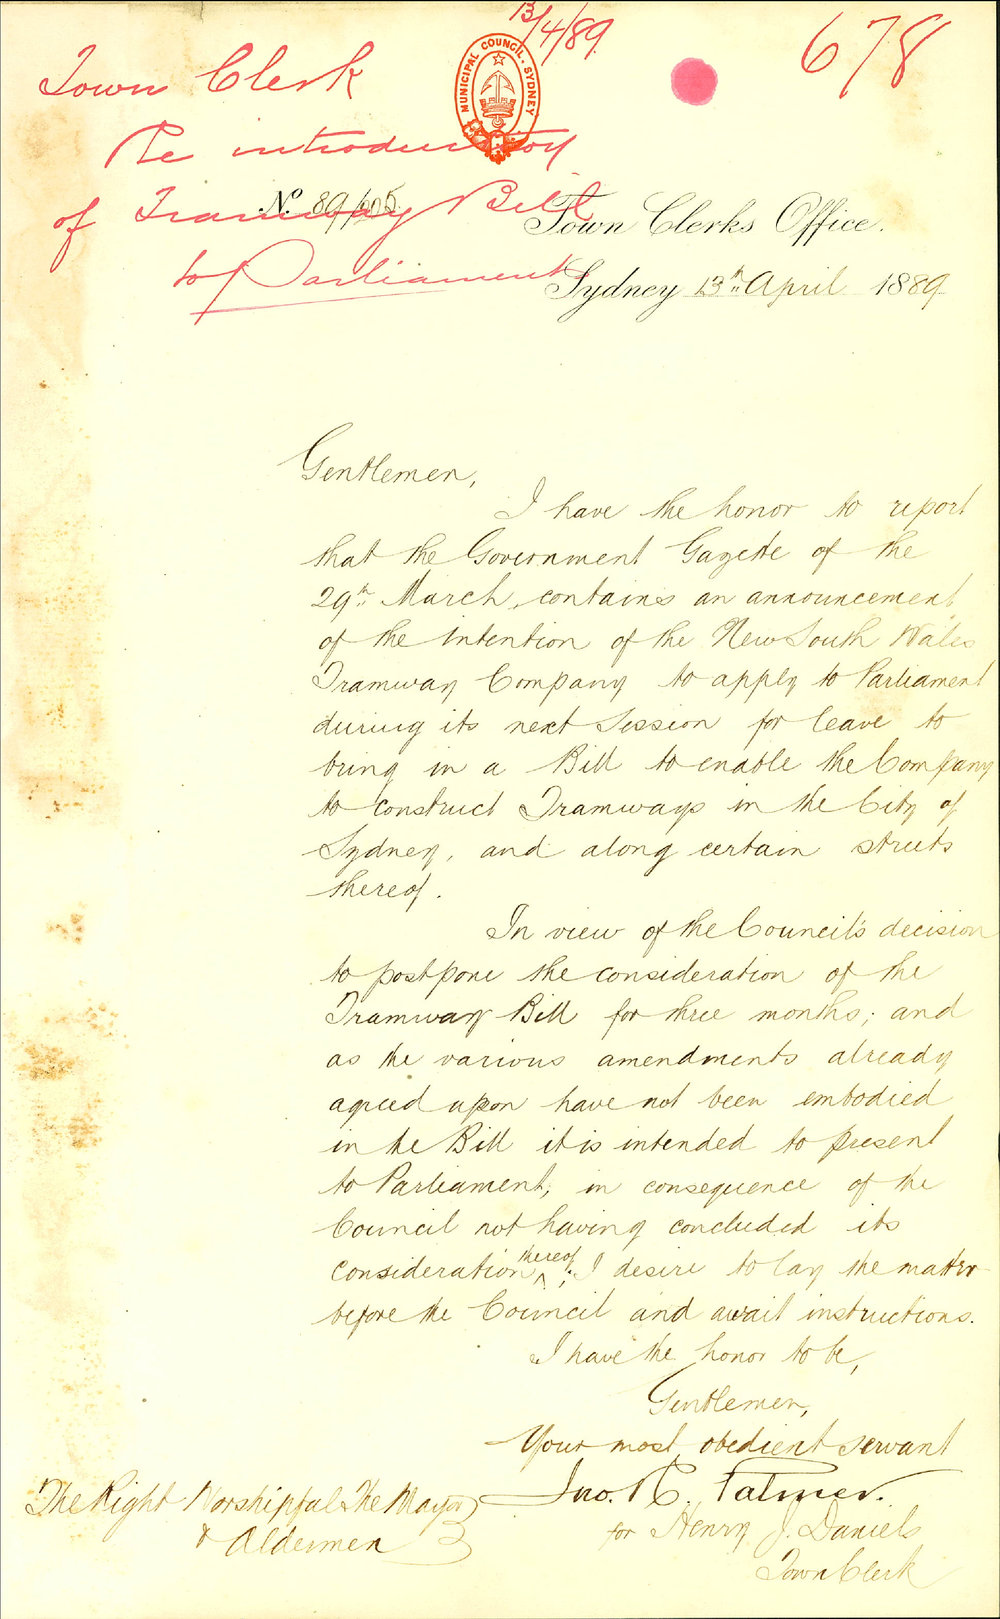 13/4/89
678
MUNICIPAL COUNCIL · SYDNEY
Town Clerk
Re introduction
of Tramway Bill
to Parliament
No. 89/
Town Clerks Office.
Sydney 13th April 1889
Gentlemen,
I have the honor to report
that the Government Gazette of the
29th March, contains an announcement
of the intention of the New South Wales
Tramway Company to apply to Parliament
during its next Session for leave to
bring in a Bill to enable the Company
to construct Tramways in the City of
Sydney, and along certain streets
thereof.
In view of the Council's decision
to postpone the consideration of the
Tramway Bill for three months; and
as the various amendments already
agreed upon have not been embodied
in the Bill it is intended to present
to Parliament, in consequence of the
Council not having concluded its
consideration thereof; I desire to lay the matter
before the Council and await instructions.
I have the honor to be,
Gentlemen,
Your most obedient servant
Jno. C. Palmer.
for Henry J. Daniels
Town Clerk
The Right Worshipful The Mayor
& Aldermen